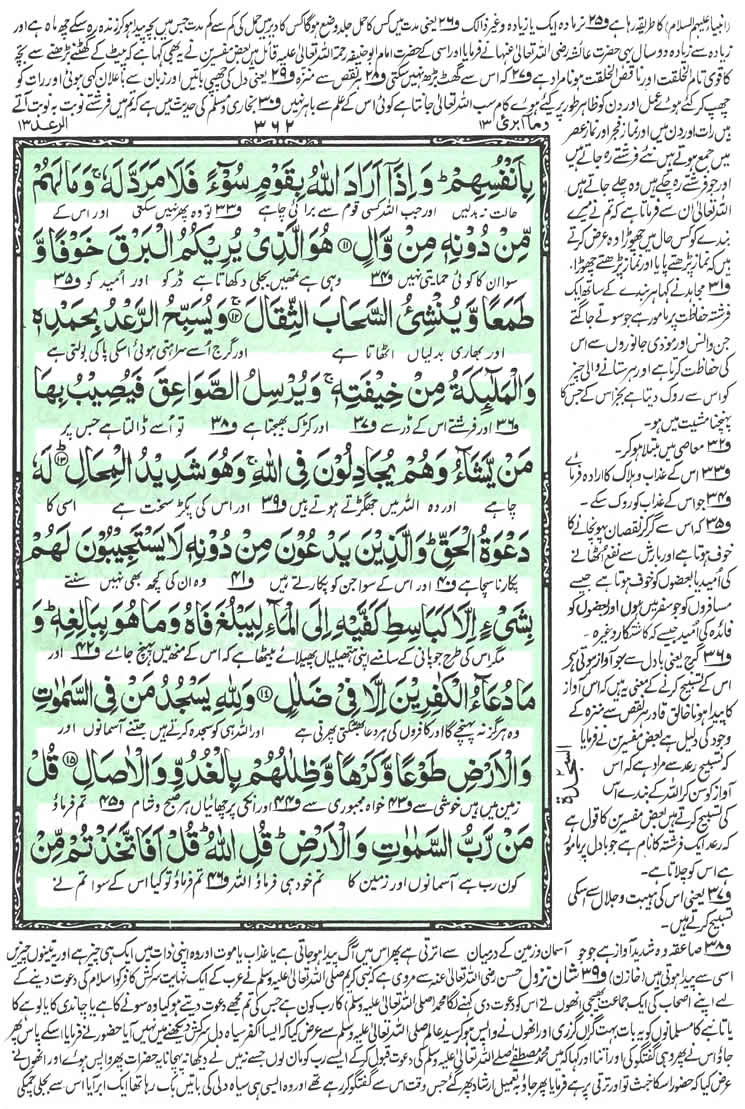 (انبیاء علیہم السلام) کا طریقہ رہا ہے و۲۵ نر مادہ ایک یا زیادہ وغیر ذالک و۲۶ یعنی مدت میں کس کا حمل جلد وضع ہوگا کس کا دیر میں حمل کی کم سے کم مدت جس میں بچہ پیدا ہو کر زندہ رہ سکے چھ ماہ ہے اور
زیادہ سے زیادہ دو سال یہی حضرت عائشہ رضی اللہ تعالیٰ عنہا نے فرمایا اور اسی کے حضرت امام ابو حنیفہ رحمۃ اللہ تعالیٰ علیہ قائل ہیں بعض مفسرین نے یہ بھی کہا ہے کہ پیٹ کے گھٹنے بڑھنے سے بچہ
کا قوی تام الخلقت اور ناقص الخلقت ہونا مراد ہے و۲۷ کہ اس سے گھٹ بڑھ نہیں سکتی و۲۸ ہر نقص سے منزہ و۲۹ یعنی دل کی چھپی باتیں اور زبان سے باعلان کہی ہوئی اور رات کو
چھپ کر کئے ہوئے عمل اور دن کو ظاہر طور پر کئے ہوئے کام سب اللہ تعالیٰ جانتا ہے کوئی اس کے علم سے باہر نہیں و۳۰ بخاری و مسلم کی حدیث میں ہے کہ تم میں فرشتے نوبت بہ نوبت آتے
الرعد ۱۳
۳۶۲
وما ابرئ ۱۳
ہیں رات اور دن میں اور نماز فجر اور نماز عصر
میں جمع ہوتے ہیں نئے فرشتے رہ جاتے ہیں
اور جو فرشتے رہ چکے ہیں وہ چلے جاتے ہیں
اللہ تعالیٰ ان سے فرماتا ہے کہ تم نے میرے
بندے کو کس حال میں چھوڑا وہ عرض کرتے
ہیں کہ نماز پڑھتے پایا اور نماز پڑھتے چھوڑا۔
و۳۱ مجاہد نے کہا ہر بندے کے ساتھ ایک
فرشتہ حفاظت پر مامور ہے جو سوتے جاگتے
جن و انس اور موذی جانوروں سے اس
کی حفاظت کرتا ہے اور ہر ستانے والی چیز
کو اس سے روک دیتا ہے بجز اس کے جس کا
پہنچنا مشیت میں ہو۔
و۳۲ معاصی میں مبتلا ہو کر۔
و۳۳ اس کے عذاب و ہلاک کا ارادہ فرمائے
و۳۴ جو اس کے عذاب کو روک سکے۔
و۳۵ کہ اس سے گر کر نقصان پہونچانے کا
خوف ہوتا ہے اور بارش سے نفع اٹھانے
کی امید یا بعضوں کو خوف ہوتا ہے جیسے
مسافروں کو جو سفر میں ہوں اور بعضوں کو
فائدہ کی امید جیسے کہ کاشتکار وغیرہ۔
و۳۶ گرج یعنی بادل سے جو آواز ہوتی ہے
اس کے تسبیح کرنے کے معنی یہ ہیں کہ اس آواز
کا پیدا ہونا خالق قادر ہر نقص سے منزہ کے
وجود کی دلیل ہے بعض مفسرین نے فرمایا
کہ تسبیح رعد سے مراد ہے کہ اس
آواز کو سن کر اللہ کے بندے اس
کی تسبیح کرتے ہیں بعض مفسرین کا قول ہے
کہ رعد ایک فرشتہ کا نام ہے جو بادل پر مامور
ہے اس کو چلاتا ہے۔
و۳۷ یعنی اس کی ہیبت و جلال سے اسکی
تسبیح کرتے ہیں۔
السجدۃ
بِاَنْفُسِهِمْ ؕ وَ اِذَاۤ اَرَادَ اللّٰهُ بِقَوْمٍ سُوْٓءًا فَلَا مَرَدَّ لَهٗ ۚ وَ مَا لَهُمْ
حالت نہ بدلیں اور جب اللہ کسی قوم سے برائی چاہے و۳۳ تو وہ پھر نہیں سکتی اور اس کے
مِّنْ دُوْنِهٖ مِنْ وَّالٍ ۝۱۱ هُوَ الَّذِیْ یُرِیْكُمُ الْبَرْقَ خَوْفًا وَّ
سوا ان کا کوئی حمایتی نہیں و۳۴ وہی ہے تمہیں بجلی دکھاتا ہے ڈر کو اور امید کو و۳۵
طَمَعًا وَّ یُنْشِئُ السَّحَابَ الثِّقَالَ ۝۱۲ ۚ وَ یُسَبِّحُ الرَّعْدُ بِحَمْدِهٖ
اور بھاری بدلیاں اٹھاتا ہے اور گرج اُسے سراہتی ہوئی اسکی پاکی بولتی ہے
وَ الْمَلٰٓىِٕكَةُ مِنْ خِیْفَتِهٖ ۚ وَ یُرْسِلُ الصَّوَاعِقَ فَیُصِیْبُ بِهَا
و۳۶ اور فرشتے اس کے ڈر سے و۳۷ اور کڑک بھیجتا ہے و۳۸ تو اُسے ڈالتا ہے جس پر
مَنْ یَّشَآءُ وَ هُمْ یُجَادِلُوْنَ فِی اللّٰهِ ۚ وَ هُوَ شَدِیْدُ الْمِحَالِ ۝۱۳ ؕ لَهٗ
چاہے اور وہ اللہ میں جھگڑتے ہوتے ہیں و۳۹ اور اس کی پکڑ سخت ہے اسی کا
دَعْوَةُ الْحَقِّ ؕ وَ الَّذِیْنَ یَدْعُوْنَ مِنْ دُوْنِهٖ لَا یَسْتَجِیْبُوْنَ لَهُمْ
پکارنا سچا ہے و۴۰ اور اس کے سوا جن کو پکارتے ہیں و۴۱ وہ ان کی کچھ بھی نہیں سنتے
بِشَیْءٍ اِلَّا كَبَاسِطِ كَفَّیْهِ اِلَی الْمَآءِ لِیَبْلُغَ فَاهُ وَ مَا هُوَ بِبَالِغِهٖ ؕ وَ
مگر اس کی طرح جو پانی کے سامنے اپنی ہتھیلیاں پھیلائے بیٹھا ہے کہ اس کے منھ میں پہنچ جائے و۴۲ اور
مَا دُعَآءُ الْكٰفِرِیْنَ اِلَّا فِیْ ضَلٰلٍ ۝۱۴ وَ لِلّٰهِ یَسْجُدُ مَنْ فِی السَّمٰوٰتِ
وہ ہرگز نہ پہنچے گا اور کافروں کی ہر دعا بھٹکتی پھرتی ہے اور اللہ ہی کو سجدہ کرتے ہیں جتنے آسمانوں اور
وَ الْاَرْضِ طَوْعًا وَّ كَرْهًا وَّ ظِلٰلُهُمْ بِالْغُدُوِّ وَ الْاٰصَالِ ۝۱۵ قُلْ
زمین میں ہیں خوشی سے و۴۳ خواہ مجبوری سے و۴۴ اور انکی پرچھائیاں ہر صبح و شام و۴۵ تم فرماؤ
مَنْ رَّبُّ السَّمٰوٰتِ وَ الْاَرْضِ ؕ قُلِ اللّٰهُ ؕ قُلْ اَفَاتَّخَذْتُمْ مِّنْ
کون رب ہے آسمانوں اور زمین کا تم خود ہی فرماؤ اللہ و۴۶ تم فرماؤ تو کیا اس کے سوا تم نے
و۳۸ صاعقہ وہ شدید آواز ہے جو جو آسمان و زمین کے درمیان سے اترتی ہے پھر اس میں آگ پیدا ہو جاتی ہے یا عذاب یا موت اور وہ اپنی ذات میں ایک ہی چیز ہے اور یہ تینوں چیزیں
اسی سے پیدا ہوتی ہیں (خازن) و۳۹ شان نزول حسن رضی اللہ تعالیٰ عنہ سے مروی ہے کہ نبی کریم صلی اللہ تعالیٰ علیہ وسلم نے عرب کے ایک نہایت سرکش کافر کو اسلام کی دعوت دینے کے
لیے اپنے اصحاب کی ایک جماعت بھیجی انھوں نے اس کو دعوت دی کہنے لگا محمد (صلی اللہ تعالیٰ علیہ وسلم) کا رب کون ہے جس کی تم مجھے دعوت دیتے ہو کیا وہ سونے کا ہے یا چاندی کا یا لوہے کا
یا تانبے کا مسلمانوں کو یہ بات بہت گراں گزری اور انھوں نے واپس ہو کر سید عالم صلی اللہ تعالیٰ علیہ وسلم سے عرض کیا کہ ایسا اکفر سیاہ دل سرکش دیکھنے میں نہیں آیا حضور نے فرمایا اسکے پاس پھر
جاؤ اس نے پھر وہی گفتگو کی اور اتنا اور کہا کہ میں محمد مصطفےٰ صلی اللہ تعالیٰ علیہ وسلم کی دعوت قبول کر کے ایسے رب کو مان لوں جسے نہ میں نے دیکھا نہ پہچانا یہ حضرات پھر واپس ہوئے اور انھوں نے
عرض کیا کہ حضور اسکا خبث تو اور ترقی پر ہے فرمایا پھر جاؤ بہ تعمیل ارشاد پھر گئے جس وقت اس سے گفتگو کر رہے تھے اور وہ ایسی ہی سیاہ دلی کی باتیں بک رہا تھا ایک ابر آیا اس سے بجلی چمکی